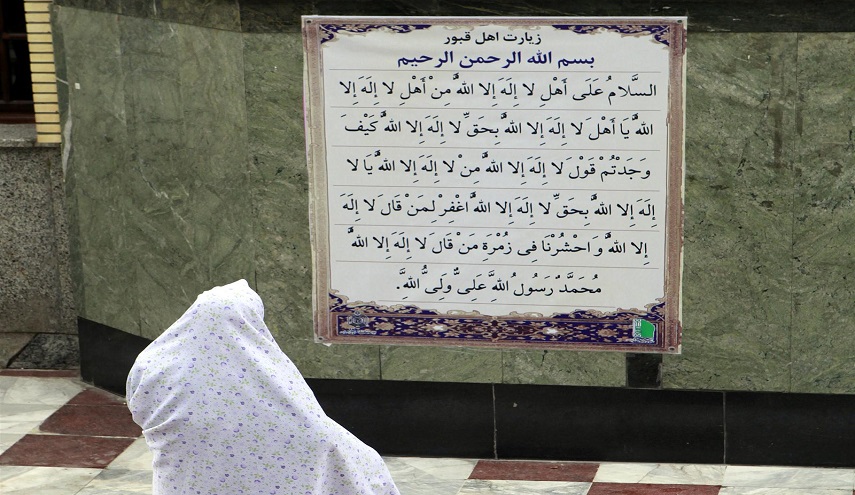 زيارت اهل قبور
بسم الله الرحمن الرحيم
السَّلامُ عَلَى أَهْلِ لا إِلَهَ إِلا اللهُ مِنْ أَهْلِ لا إِلَهَ إِلا
اللهُ يَا أَهْلَ لا إِلَهَ إِلا اللهُ بِحَقِّ لا إِلَهَ إِلا اللهُ كَيْفَ
وَجَدْتُمْ قَوْلَ لا إِلَهَ إِلا اللهُ مِنْ لا إِلَهَ إِلا اللهُ يَا لا
إِلَهَ إِلا اللهُ بِحَقِّ لا إِلَهَ إِلا اللهُ اغْفِرْ لِمَنْ قَالَ لا إِلَهَ
إِلا اللهُ وَ احْشُرْنَا فِی زُمْرَةِ مَنْ قَالَ لا إِلَهَ إِلا اللهُ
مُحَمَّدٌ رَسُولُ اللهَّ عَلِیٌّ وَلِیُّ اللهَّ.